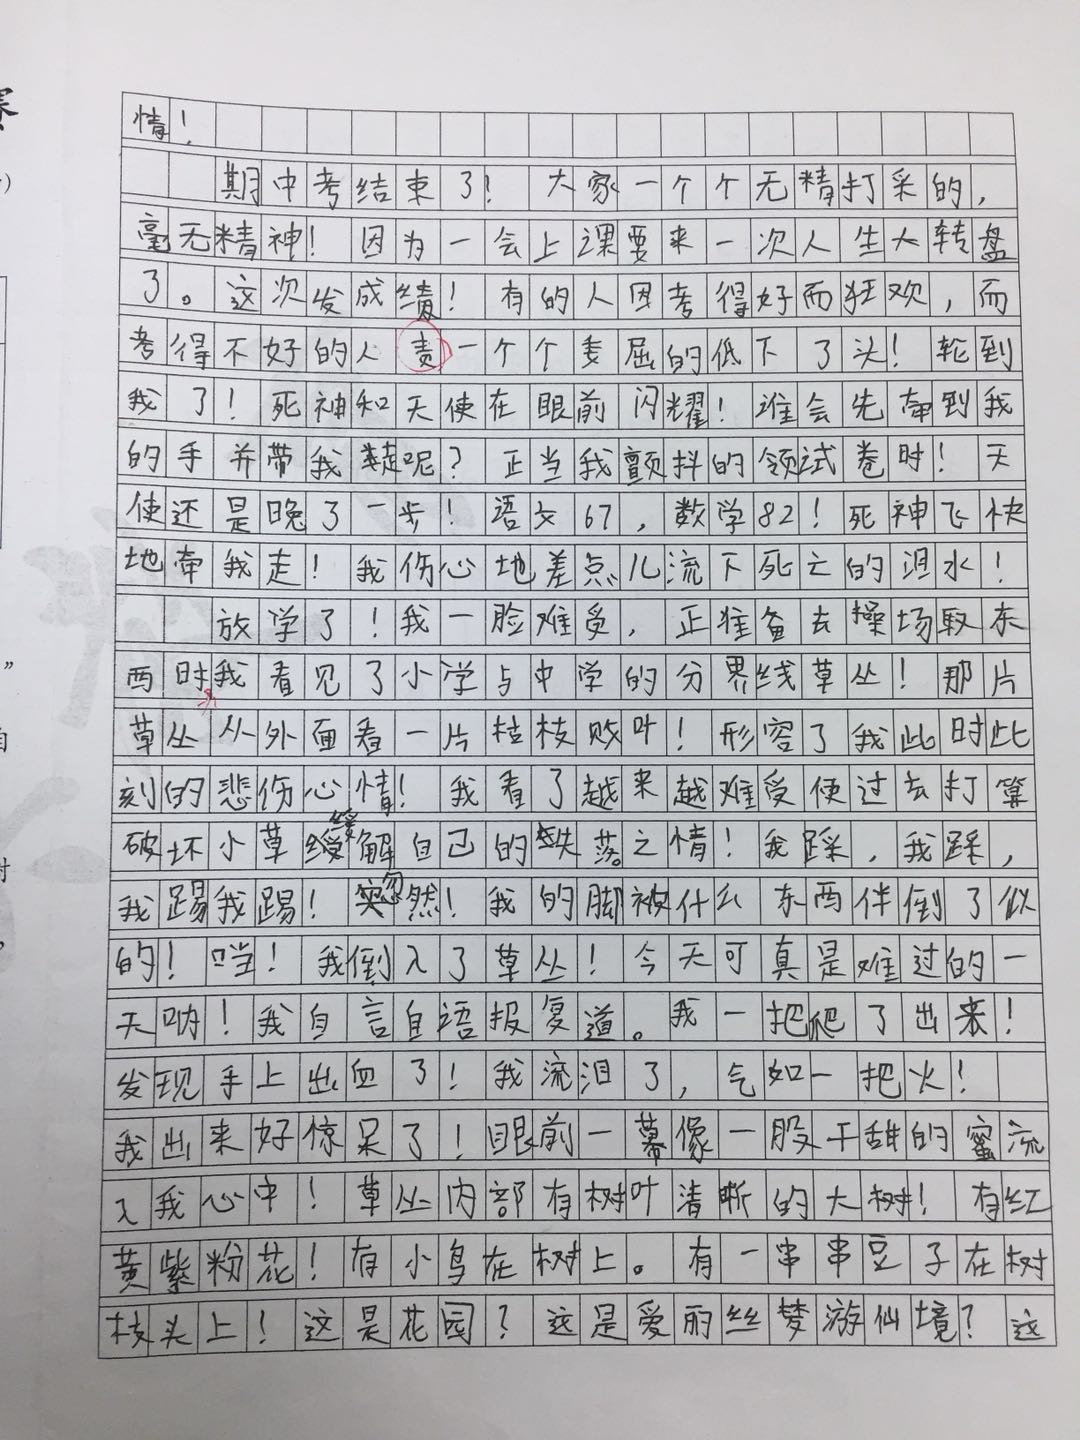 情！
期中考结束了！大家一个个无精打采的，
毫无精神！因为一会上课要来一次人生大转盘
了。这次发成绩！有的人因考得好而狂欢，而
考得不好的人责一个个委屈的低下了头！轮到
我了！死神和天使在眼前闪耀！谁会先牵到我
的手并带我走呢？正当我颤抖的领试卷时！天
使还是晚了一步！语文67，数学82！死神飞快
地牵我走！我伤心地差点儿流下死亡的泪水！
放学了！我一脸难受，正准备去操场取东
西时我看见了小学与中学的分界线草丛！那片
草丛从外面看一片枯枝败叶！形容了我此时此
刻的悲伤心情！我看了越来越难受便过去打算
破坏小草缓解自己的失落之情！我踩，我踩，
我踢我踢！忽然！我的脚被什么东西伴倒了似
的！咣！我倒入了草丛！今天可真是难过的一
天呐！我自言自语报复道。我一把爬了出来！
发现手上出血了！我流泪了，气如一把火！
我出来好惊呆了！眼前一幕像一股干甜的蜜流
入我心中！草丛内部有树叶清晰的大树！有红
黄紫粉花！有小鸟在树上。有一串串豆子在树
枝头上！这是花园？这是爱丽丝梦游仙境？这